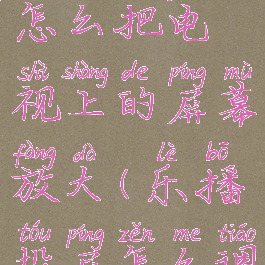 怎么把电
shì shàng de píng mù
视上的屏幕
fàng dà lè bō
放大(乐播
tóu píng zěn me tiáo
投屏怎么调